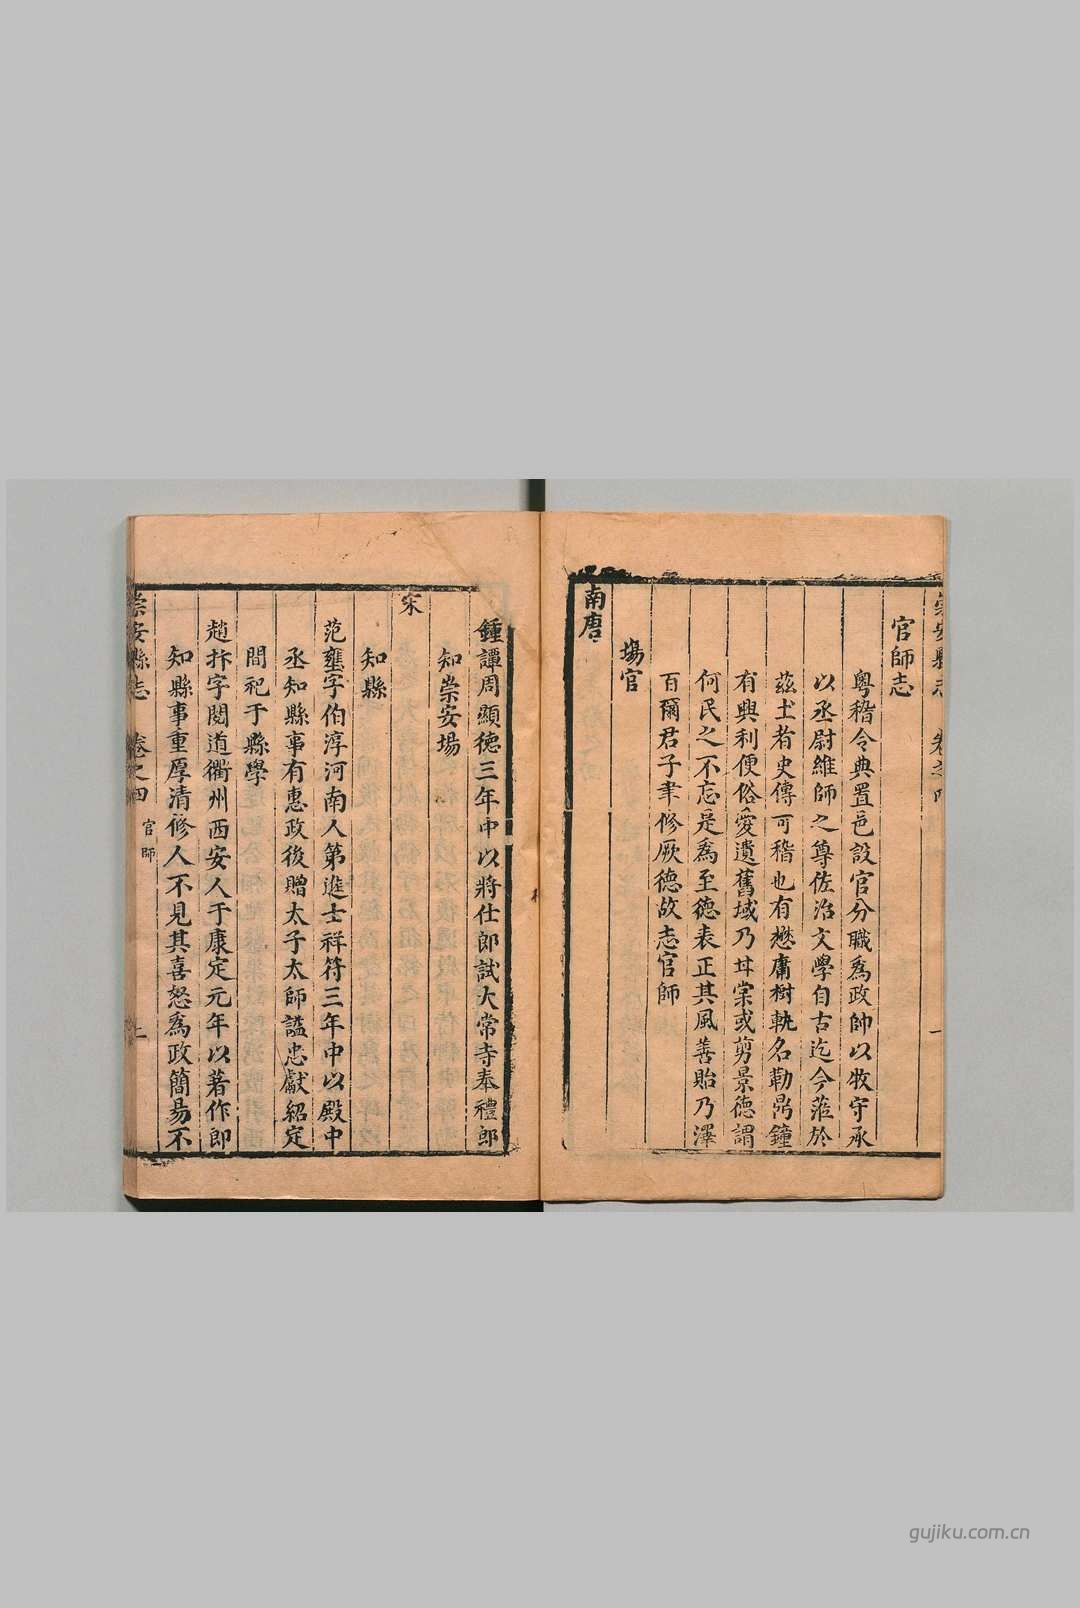 崇安縣志 卷之四 一
官師志
粵稽令典置邑設官分職爲政帥以牧守承
以丞尉維師之尊佐治文學自古迄今蒞於
茲土者史傳可稽也有懋庸樹軌名勒鼎鐘
有興利便俗愛遺舊域乃甘棠或剪景德謂
何民之不忘是爲至德表正其風善貽乃澤
百爾君子聿修厥德故志官師
場官
南唐
鍾譚周顯德三年中以將仕郎試大常寺奉禮郎
知崇安場
宋
知縣
范壅字伯淳河南人第進士祥符三年中以殿中
丞知縣事有惠政後贈太子太師謚忠獻紹定
間祀于縣學
趙抃字閱道衢州西安人于康定元年以著作郎
知縣事重厚清修人不見其喜怒爲政簡易不
崇安縣志 卷之四 官師
gujiku.com.cn